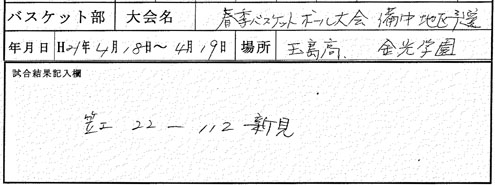 バスケット部 大会名 春季バスケットボール大会 備中地区予選
年月日 H21年4月18日〜4月19日 場所 玉島高. 金光学園
試合結果記入欄
笠工 22 ー 112 新見